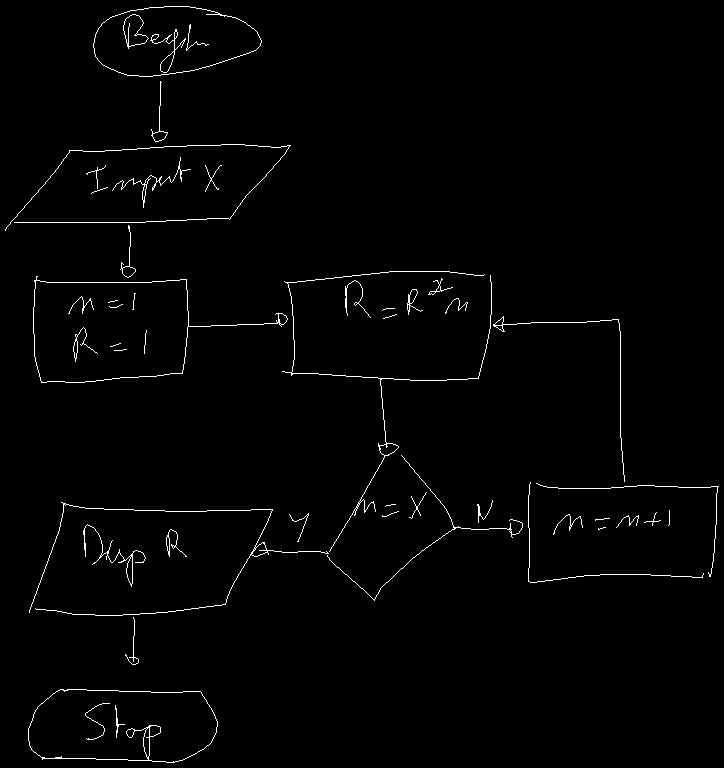 Begin
Imput X
n = 1
R = 1
R = R * n
n = X
N
n = n+1
Y
Disp R
Stop